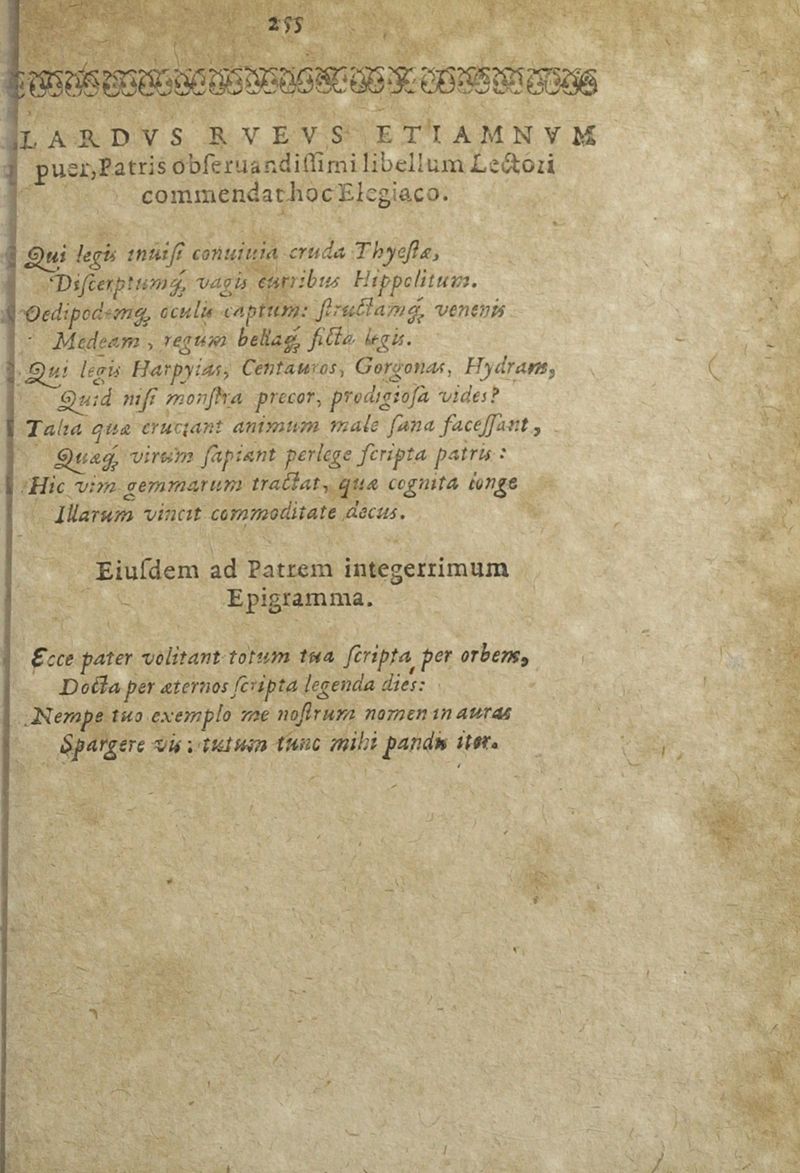 255
LARDVS RVEVS ETIAMNVM
puer, Patris obſeruandiſſimi libellum Lectori
commendat hoc Elegiaco.
Qui legis inuiſi conuiuia cruda Thyeſtæ,
Diſcerptumq́; vagis curribus Hippolitum.
Oedipodemq́; oculis captum: ſtructamq́; venenis
Medeam, regum bellaq́; ficta legis.
Qui legis Harpyias, Centauros, Gorgonas, Hydram,
Quid niſi monſtra precor, prodigioſa vides?
Talia quæ cruciant animum male ſana faceſſant,
Quæq́; virum ſapiant perlege ſcripta patris:
Hic vim gemmarum tractat, qua cognita longe
Illarum vincit commoditate decus.
Eiuſdem ad Patrem integerrimum
Epigramma.
Ecce pater volitant totum tua ſcripta per orbem,
Docta per æternos ſcripta legenda dies:
Nempe tuo exemplo me noſtrum nomen in auras
Spargere vis: tutum tunc mihi pandis iter.